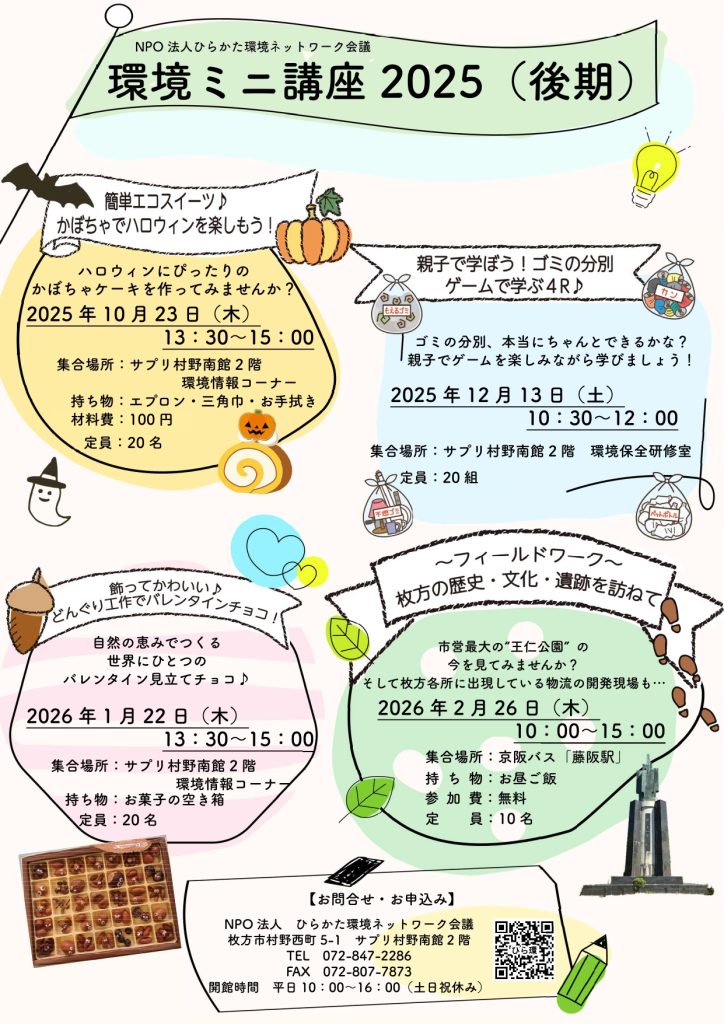 NPO 法人ひらかた環境ネットワーク会議
環境ミニ講座 2025（後期）
簡単エコスイーツ♪
かぼちゃでハロウィンを楽しもう！
ハロウィンにぴったりの
かぼちゃケーキを作ってみませんか？
2025 年 10 月 23 日（木）
13：30～15：00
集合場所：サプリ村野南館２階
環境情報コーナー
持ち物：エプロン・三角巾・お手拭き
材料費：100 円
定員：20 名
親子で学ぼう！ゴミの分別
ゲームで学ぶ４R♪
もえるゴミ
カン
ゴミの分別、本当にちゃんとできるかな？
親子でゲームを楽しみながら学びましょう！
2025 年 12 月 13 日（土）
10：30～12：00
集合場所：サプリ村野南館２階　環境保全研修室
定員：20 組
不燃ゴミ
ペットボトル
飾ってかわいい♪
どんぐり工作でバレンタインチョコ！
自然の恵みでつくる
世界にひとつの
バレンタイン見立てチョコ♪
2026 年 1 月 22 日（木）
13：30～15：00
集合場所：サプリ村野南館２階
環境情報コーナー
持ち物：お菓子の空き箱
定員：20 名
～フィールドワーク～
枚方の歴史・文化・遺跡を訪ねて
市営最大の“王仁公園” の
今を見てみませんか？
そして枚方各所に出現している物流の開発現場も…
2026 年 2 月 26 日（木）
10：00～15：00
集合場所：京阪バス「藤阪駅」
持 ち 物：お昼ご飯
参 加 費：無料
定　　員：10 名
【お問合せ・お申込み】
NPO 法人　ひらかた環境ネットワーク会議
枚方市村野西町 5-1　サプリ村野南館２階
TEL　072-847-2286
FAX　072-807-7873
開館時間　平日 10：00～16：00（土日祝休み）
ひら環